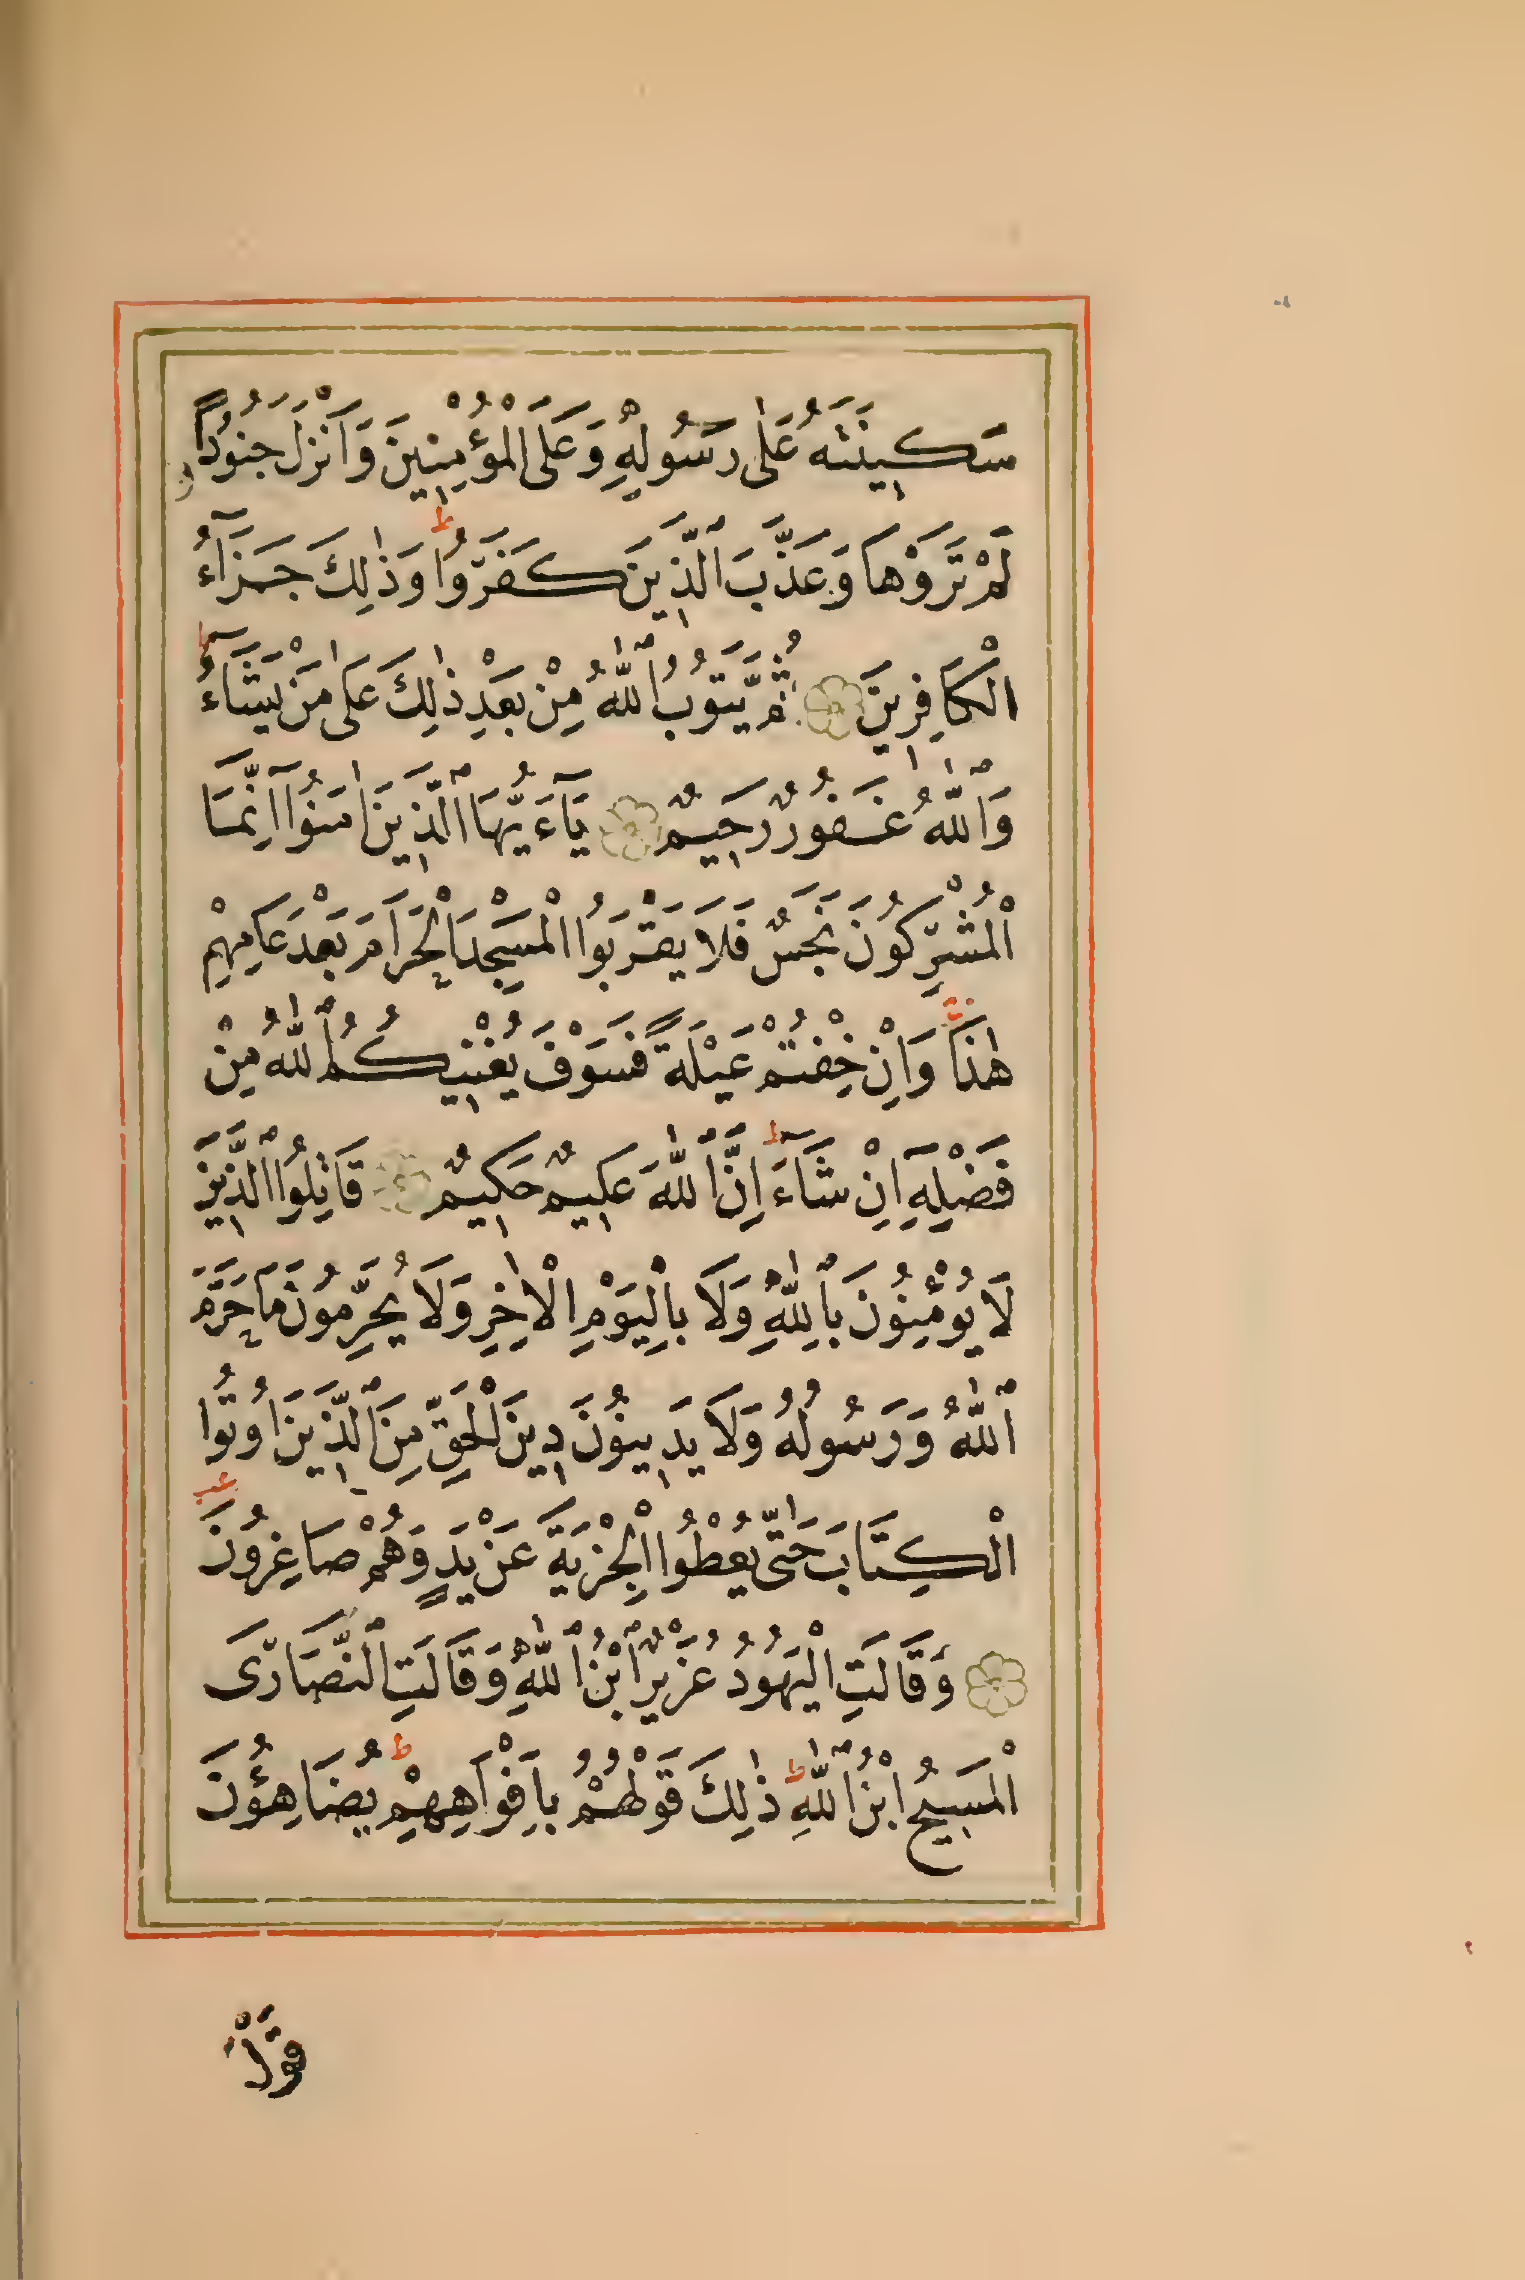 سَكِينَتَهُ عَلٰى رَسُولِهِ وَعَلَى الْمُؤْمِنِينَ وَاَنْزَلَ جُنُودًا
لَمْ تَرَوْهَا وَعَذَّبَ الَّذِينَ كَفَرُوا ط وَذٰلِكَ جَزَآءُ
الْكَافِرِينَ ثُمَّ يَتُوبُ اللّٰهُ مِنْ بَعْدِ ذٰلِكَ عَلٰى مَنْ يَشَآءُ ط
وَاللّٰهُ غَفُورٌ رَحِيمٌ يَآءَيُّهَا الَّذِينَ اٰمَنُوآ اِنَّمَا
الْمُشْرِكُونَ نَجَسٌ فَلَا يَقْرَبُوا الْمَسْجِدَ الْحَرَامَ بَعْدَ عَامِهِمْ
هٰذَا وَاِنْ خِفْتُمْ عَيْلَةً فَسَوْفَ يُغْنِيكُمُ اللّٰهُ مِنْ
فَضْلِهِ اِنْ شَآءَ ط اِنَّ اللّٰهَ عَلِيمٌ حَكِيمٌ قَاتِلُوا الَّذِينَ
لَا يُؤْمِنُونَ بِاللّٰهِ وَلَا بِالْيَوْمِ الْاٰخِرِ وَلَا يُحَرِّمُونَ مَا حَرَّمَ
اللّٰهُ وَرَسُولُهُ وَلَا يَدِينُونَ دِينَ الْحَقِّ مِنَ الَّذِينَ اُوتُوا
الْكِتَابَ حَتّٰى يُعْطُوا الْجِزْيَةَ عَنْ يَدٍ وَهُمْ صَاغِرُونَ
وَقَالَتِ الْيَهُودُ عُزَيْرٌ ابْنُ اللّٰهِ وَقَالَتِ النَّصَارَى
الْمَسِيحُ ابْنُ اللّٰهِ ط ذٰلِكَ قَوْلُهُمْ بِاَفْوَاهِهِمْ ط يُضَاهِؤُنَ
قَوْلَ